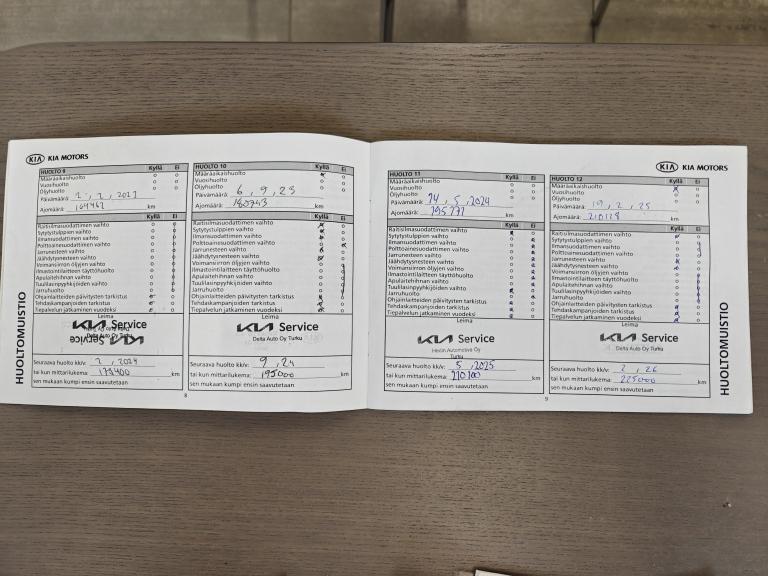 KIA KIA MOTORS
HUOLTOMUISTIO
HUOLTO 9 Kyllä Ei
Määräaikaishuolto
Vuosihuolto
Öljyhuolto
Päivämäärä:
Ajomäärä: km
Kyllä Ei
Raitisilmasuodattimen vaihto
Sytytystulppien vaihto
Ilmansuodattimen vaihto
Polttoainesuodattimen vaihto
Jarrunesteen vaihto
Jäähdytysnesteen vaihto
Voimansiirron öljyjen vaihto
Ilmastointilaitteen täyttöhuolto
Apulaitehihnan vaihto
Tuulilasinpyyhkijöiden vaihto
Jarruhuolto
Ohjainlaitteiden päivitysten tarkistus
Tehdaskampanjoiden tarkistus
Tiepalvelun jatkaminen vuodeksi
Leima
KIA Service
Delta Auto Oy Turku
KIA Service
Seuraava huolto kk/v: 2, 2024
tai kun mittarilukema: km
sen mukaan kumpi ensin saavutetaan
8
HUOLTO 10 Kyllä Ei
Määräaikaishuolto
Vuosihuolto
Öljyhuolto
Päivämäärä: 6, 9, 23
Ajomäärä: 180743 km
Kyllä Ei
Raitisilmasuodattimen vaihto
Sytytystulppien vaihto
Ilmansuodattimen vaihto
Polttoainesuodattimen vaihto
Jarrunesteen vaihto
Jäähdytysnesteen vaihto
Voimansiirron öljyjen vaihto
Ilmastointilaitteen täyttöhuolto
Apulaitehihnan vaihto
Tuulilasinpyyhkijöiden vaihto
Jarruhuolto
Ohjainlaitteiden päivitysten tarkistus
Tehdaskampanjoiden tarkistus
Tiepalvelun jatkaminen vuodeksi
Leima
KIA Service
Delta Auto Oy Turku
Seuraava huolto kk/v: 9, 24
tai kun mittarilukema: 195000 km
sen mukaan kumpi ensin saavutetaan
HUOLTO 11 Kyllä Ei
Määräaikaishuolto
Vuosihuolto
Öljyhuolto
Päivämäärä: 14, 5, 2024
Ajomäärä: 195777 km
Kyllä Ei
Raitisilmasuodattimen vaihto
Sytytystulppien vaihto
Ilmansuodattimen vaihto
Polttoainesuodattimen vaihto
Jarrunesteen vaihto
Jäähdytysnesteen vaihto
Voimansiirron öljyjen vaihto
Ilmastointilaitteen täyttöhuolto
Apulaitehihnan vaihto
Tuulilasinpyyhkijöiden vaihto
Jarruhuolto
Ohjainlaitteiden päivitysten tarkistus
Tehdaskampanjoiden tarkistus
Tiepalvelun jatkaminen vuodeksi
Leima
KIA Service
Hedin Automotive Oy
Turku
Seuraava huolto kk/v: 5, 2025
tai kun mittarilukema: km
sen mukaan kumpi ensin saavutetaan
9
KIA KIA MOTORS
HUOLTO 12 Kyllä Ei
Määräaikaishuolto
Vuosihuolto
Öljyhuolto
Päivämäärä: 19, 2, 25
Ajomäärä: 210178 km
Kyllä Ei
Raitisilmasuodattimen vaihto
Sytytystulppien vaihto
Ilmansuodattimen vaihto
Polttoainesuodattimen vaihto
Jarrunesteen vaihto
Jäähdytysnesteen vaihto
Voimansiirron öljyjen vaihto
Ilmastointilaitteen täyttöhuolto
Apulaitehihnan vaihto
Tuulilasinpyyhkijöiden vaihto
Jarruhuolto
Ohjainlaitteiden päivitysten tarkistus
Tehdaskampanjoiden tarkistus
Tiepalvelun jatkaminen vuodeksi
Leima
KIA Service
Delta Auto Oy Turku
Seuraava huolto kk/v: 2, 26
tai kun mittarilukema: 225000 km
sen mukaan kumpi ensin saavutetaan
HUOLTOMUISTIO